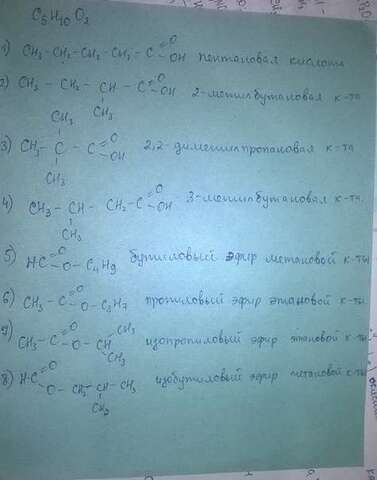 C5H10O2
1) CH3-CH2-CH2-CH2-C=O-OH пентановая кислота
2) CH3-CH2-CH(CH3)-C=O-OH 2-метилбутановая к-та
3) CH3-C(CH3)(CH3)-C=O-OH 2,2-диметилпропановая к-та
4) CH3-CH(CH3)-CH2-C=O-OH 3-метилбутановая к-та.
5) HC=O-O-C4H9 бутиловый эфир метановой к-ты
6) CH3-C=O-O-C3H7 пропиловый эфир этановой к-ты.
7) CH3-C=O-O-CH(CH3)-CH3 изопропиловый эфир этановой к-ты
8) H-C=O-O-CH2-CH(CH3)-CH3 изобутиловый эфир метановой к-ты